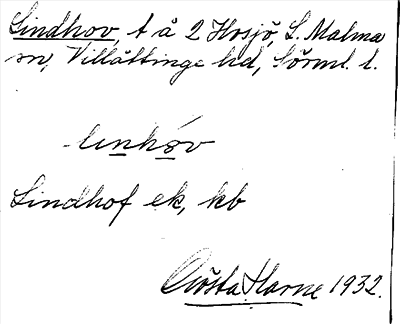 Lindhov, t å 2 Hosjö, L. Malma
sn, Villåttinge hd, Sörml. l.
linhóv
Lindhof ek, kb
Gösta Harne 1932.